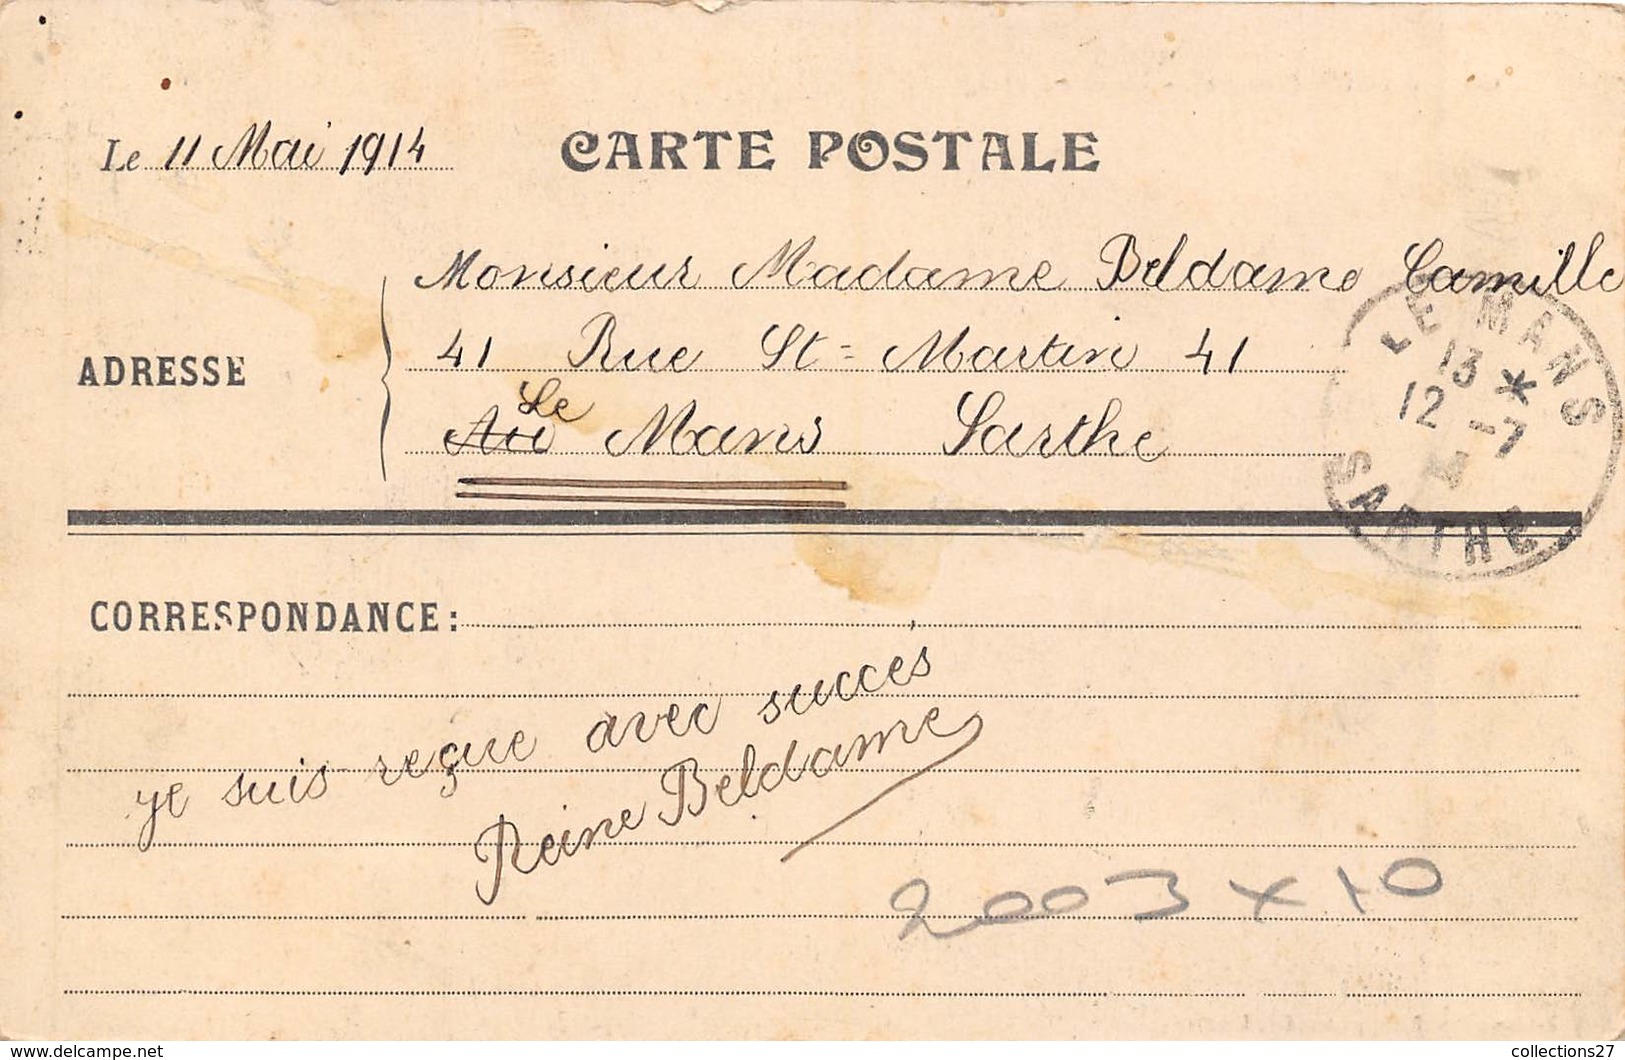 Le 11 Mai 1914
CARTE POSTALE
Monsieur Madame Beldame Camille
ADRESSE
41 Rue St= Martin 41
Le Mans Sarthe
LE MANS
13 *
12 -7
SARTHE
CORRESPONDANCE :
je suis reçue avec succès
Reine Beldame
2003 x 10
collections27